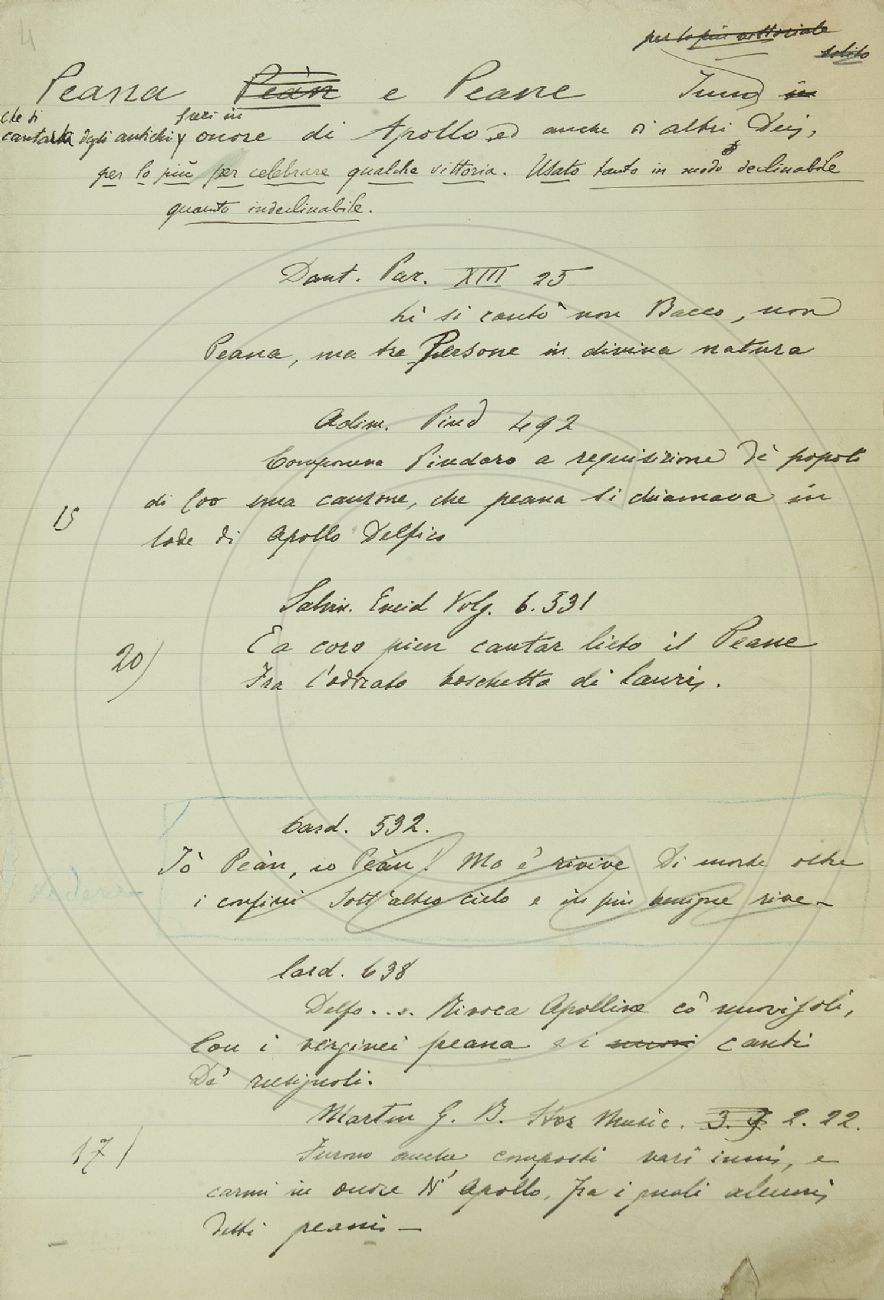 4
per lo più vittoriale
solito
Peana Peàn e Peane Inno in
che si
cantava degli antichi in onore di Apollo ed anche di altri Dei,
per lo più per celebrare qualche vittoria. Usato tanto in modo declinabile
quanto indeclinabile.
Dant. Par. XIII 25
Lì si cantò non Bacco, non
Peana, ma tre Persone in divina natura
Adim. Pind 492
Componeva Pindaro a requisizione de' popoli
15 di Coo una canzone, che peana si chiamava in
lode di Apollo Delfico
Salvin. Eneid Volg. 6. 331
20) E a coro pien cantar lieto il Peane
Fra l'odorato boschetto di lauri.
Card. 532.
Iò Peàn, io Peàn! Ma e' rivive Di morte oltre
i confini Sott'altro cielo e in più benigne rive –
Card. 638
Delfo . . . Rivoca Apolline co' nuovi soli,
Con i verginei peana e i nuovi canti
De' rusignoli.
Martin G. B. Stor Music. 3. 2. 22.
17) Furono anche composti vari inni, e
carmi in onore d'Apollo, fra i quali alcuni
detti peani –